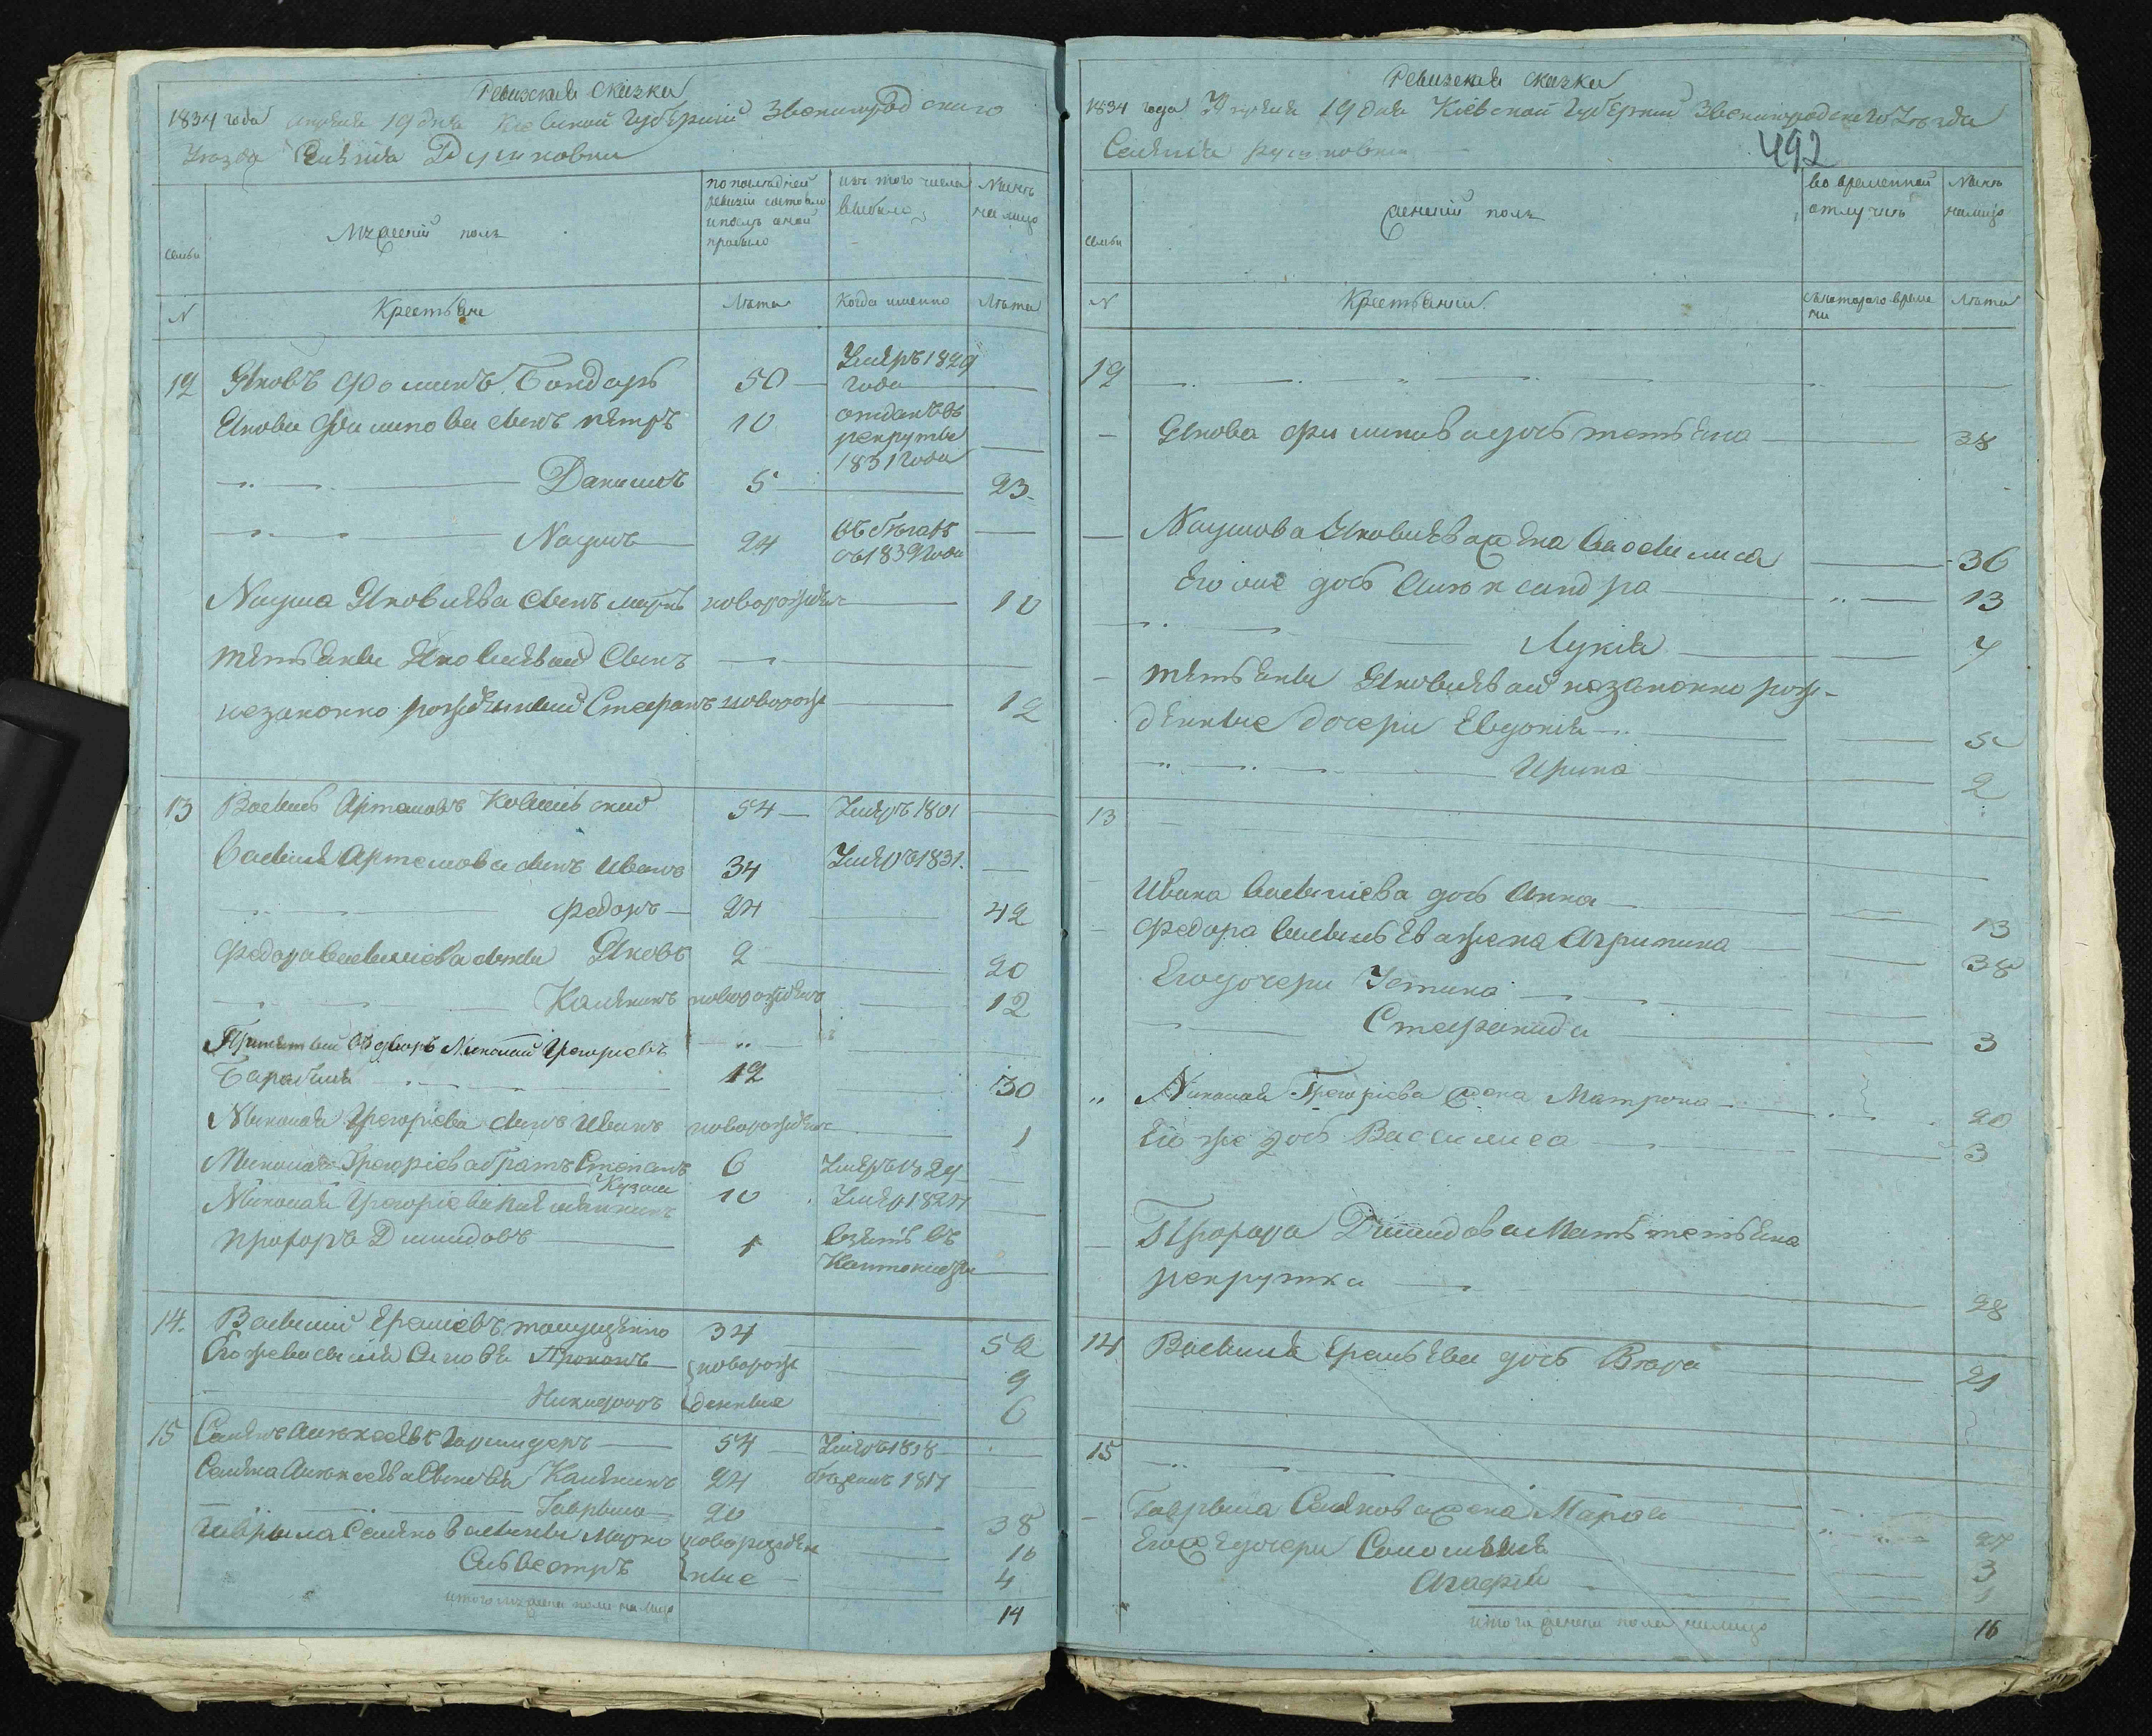 Ревизская сказка
1834 года апреля 19 дня Киевской губернии Звенигородского
Уезда Селения
Семьи
Мужеский полъ
по последней ревизии состояло и после оной прибыло
изъ того числа выбыло
Ныне на лицо
N
Крестьяне
Лета
Когда именно
Лета
12 Яковъ Фоминъ Бондарь 50 Умеръ 1829 года
Якова сынъ петръ 10 отданъ въ рекруты 1831 года
Данило 5 23
Наумъ 24 въ бегахъ
Наума Яковлева сынъ новорожден 10
Яковлевой сынъ
незаконно рожденный Стефанъ новорож 12
13 Василь Артемовъ 54 Умеръ 1801
Василя Артемова сынъ Иванъ 34 Умеръ 1831.
Федоръ 24 42
Федора Василиева сыны Яковъ 2 20
новорожденъ 12
Принятый въ дворъ Николай Григориевъ
12 30
Николая Григориева сынъ Иванъ новорожден 1
Николая Григориева братъ Степанъ 6 Умеръ 1829
Кузма
Николая Григориева племянникъ 10 Умер 1824
прохоръ Димидовъ 1 взятъ въ Кантонисты
14. Василий 34 52
Его же Василия Сыновя Прокопъ новорож 9
Никифоръ денные 6
15 Семенъ Алексеевъ 54 Умеръ 1818
Семена Алексеева Сыновя 24 1817
Гаврыло 20 38
Гаврыла Семенова сыны Марко новорожден 10
Сильвестръ ные 4
итого мужеска пола на лицо 14
Ревизская сказка
1834 года Апреля 19 дня Киевской губернии Звенигородского Уезда
Селения
492
Семьи
Женский полъ
во временной отлучке
Ныне на лицо
N
Крестьянки
съ которого времени
Лета
12
Якова дочь татьяна 38
Наумова Яковлева жена Василиса 36
Его же дочь Александра 13
Лукия 7
татьяны Яковлевой незаконно рож-
денные дочери Евдокия 5
Ирина 2
13
Ивана Василиева дочь Анна 13
Федора Васильева жена Агрипина 38
Его дочери Устина
Стефанида 3
Николая Григориева жена Матрона 20
Его же дочь Василиса 3
Прохора Димидова Мать татьяна
рекрутка 28
14 Василя дочь 21
15
Гаврыла Семенова жена Мария 27
Его же дочери Соломия 3
Агафия 1
итого женска пола налицо 16